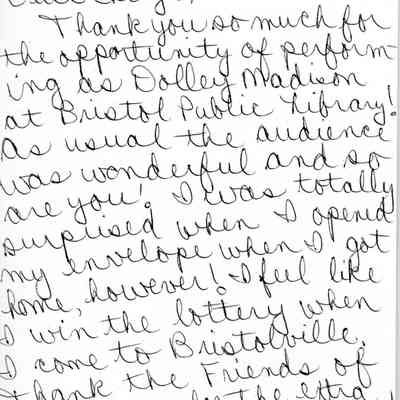 Thank you so much for
the opportunity of perform-
ing as Dolley Madison
at Bristol Public Library!
As usual the audience
was wonderful and so
are you! I was totally
surprised when I opened
my envelope when I got
home, however! I feel like
I win the lottery when
I come to Bristolville.
Thank the Friends of
the extra